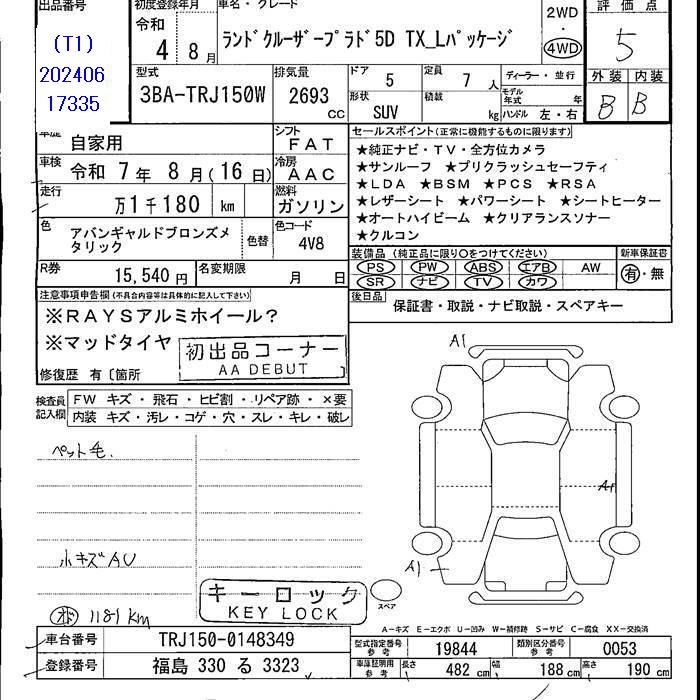 出品番号
(T1)
202406
17335
初度登録年月
令和
4 8月
車名・グレード
ランドクルーザープラド5D TX_Lパッケージ
2WD
4WD
評価点
5
外装 内装
B B
型式
3BA-TRJ150W
排気量
2693 CC
ドア 5
定員 7 人
形状 SUV
積載 kg
ディーラー・並行
モデル年式 年
ハンドル 左・右
車歴 自家用
シフト FAT
車検 令和 7年 8月(16日)
冷房 AAC
走行 万1千180 km
燃料 ガソリン
色 アバンギャルドブロンズメタリック
色替
色コード 4V8
R券 15,540円
名変期限 月 日
セールスポイント(正常に機能するものに限ります)
★純正ナビ・TV・全方位カメラ
★サンルーフ ★プリクラッシュセーフティ
★LDA ★BSM ★PCS ★RSA
★レザーシート ★パワーシート ★シートヒーター
★オートハイビーム ★クリアランスソナー
★クルコン
装備品 (純正品に限り○をつけてください)
新車保証書
PS PW ABS エアB AW
SR ナビ TV カワ
有・無
後日品 保証書・取説・ナビ取説・スペアキー
注意事項申告欄(不具合内容等は具体的に記入して下さい)
※RAYSアルミホイール?
※マッドタイヤ
初出品コーナー
AA DEBUT
修復歴 有〔箇所 〕
検査員記入欄
FW キズ・飛石・ヒビ割・リペア跡・×要
内装 キズ・汚レ・コゲ・穴・スレ・キレ・破レ
ペット毛.
小キズAU
1181 km
A1
A1
A1
キーロック
KEY LOCK
スペア
A-キズ E-エクボ U-凹み W-補修跡 S-サビ C-腐食 XX-交換済
車台番号 TRJ150-0148349
登録番号 福島 330 る 3323
型式指定番号 参考 19844
類別区分番号 参考 0053
車庫証明用 参考 長さ 482 cm 幅 188 cm 高さ 190 cm